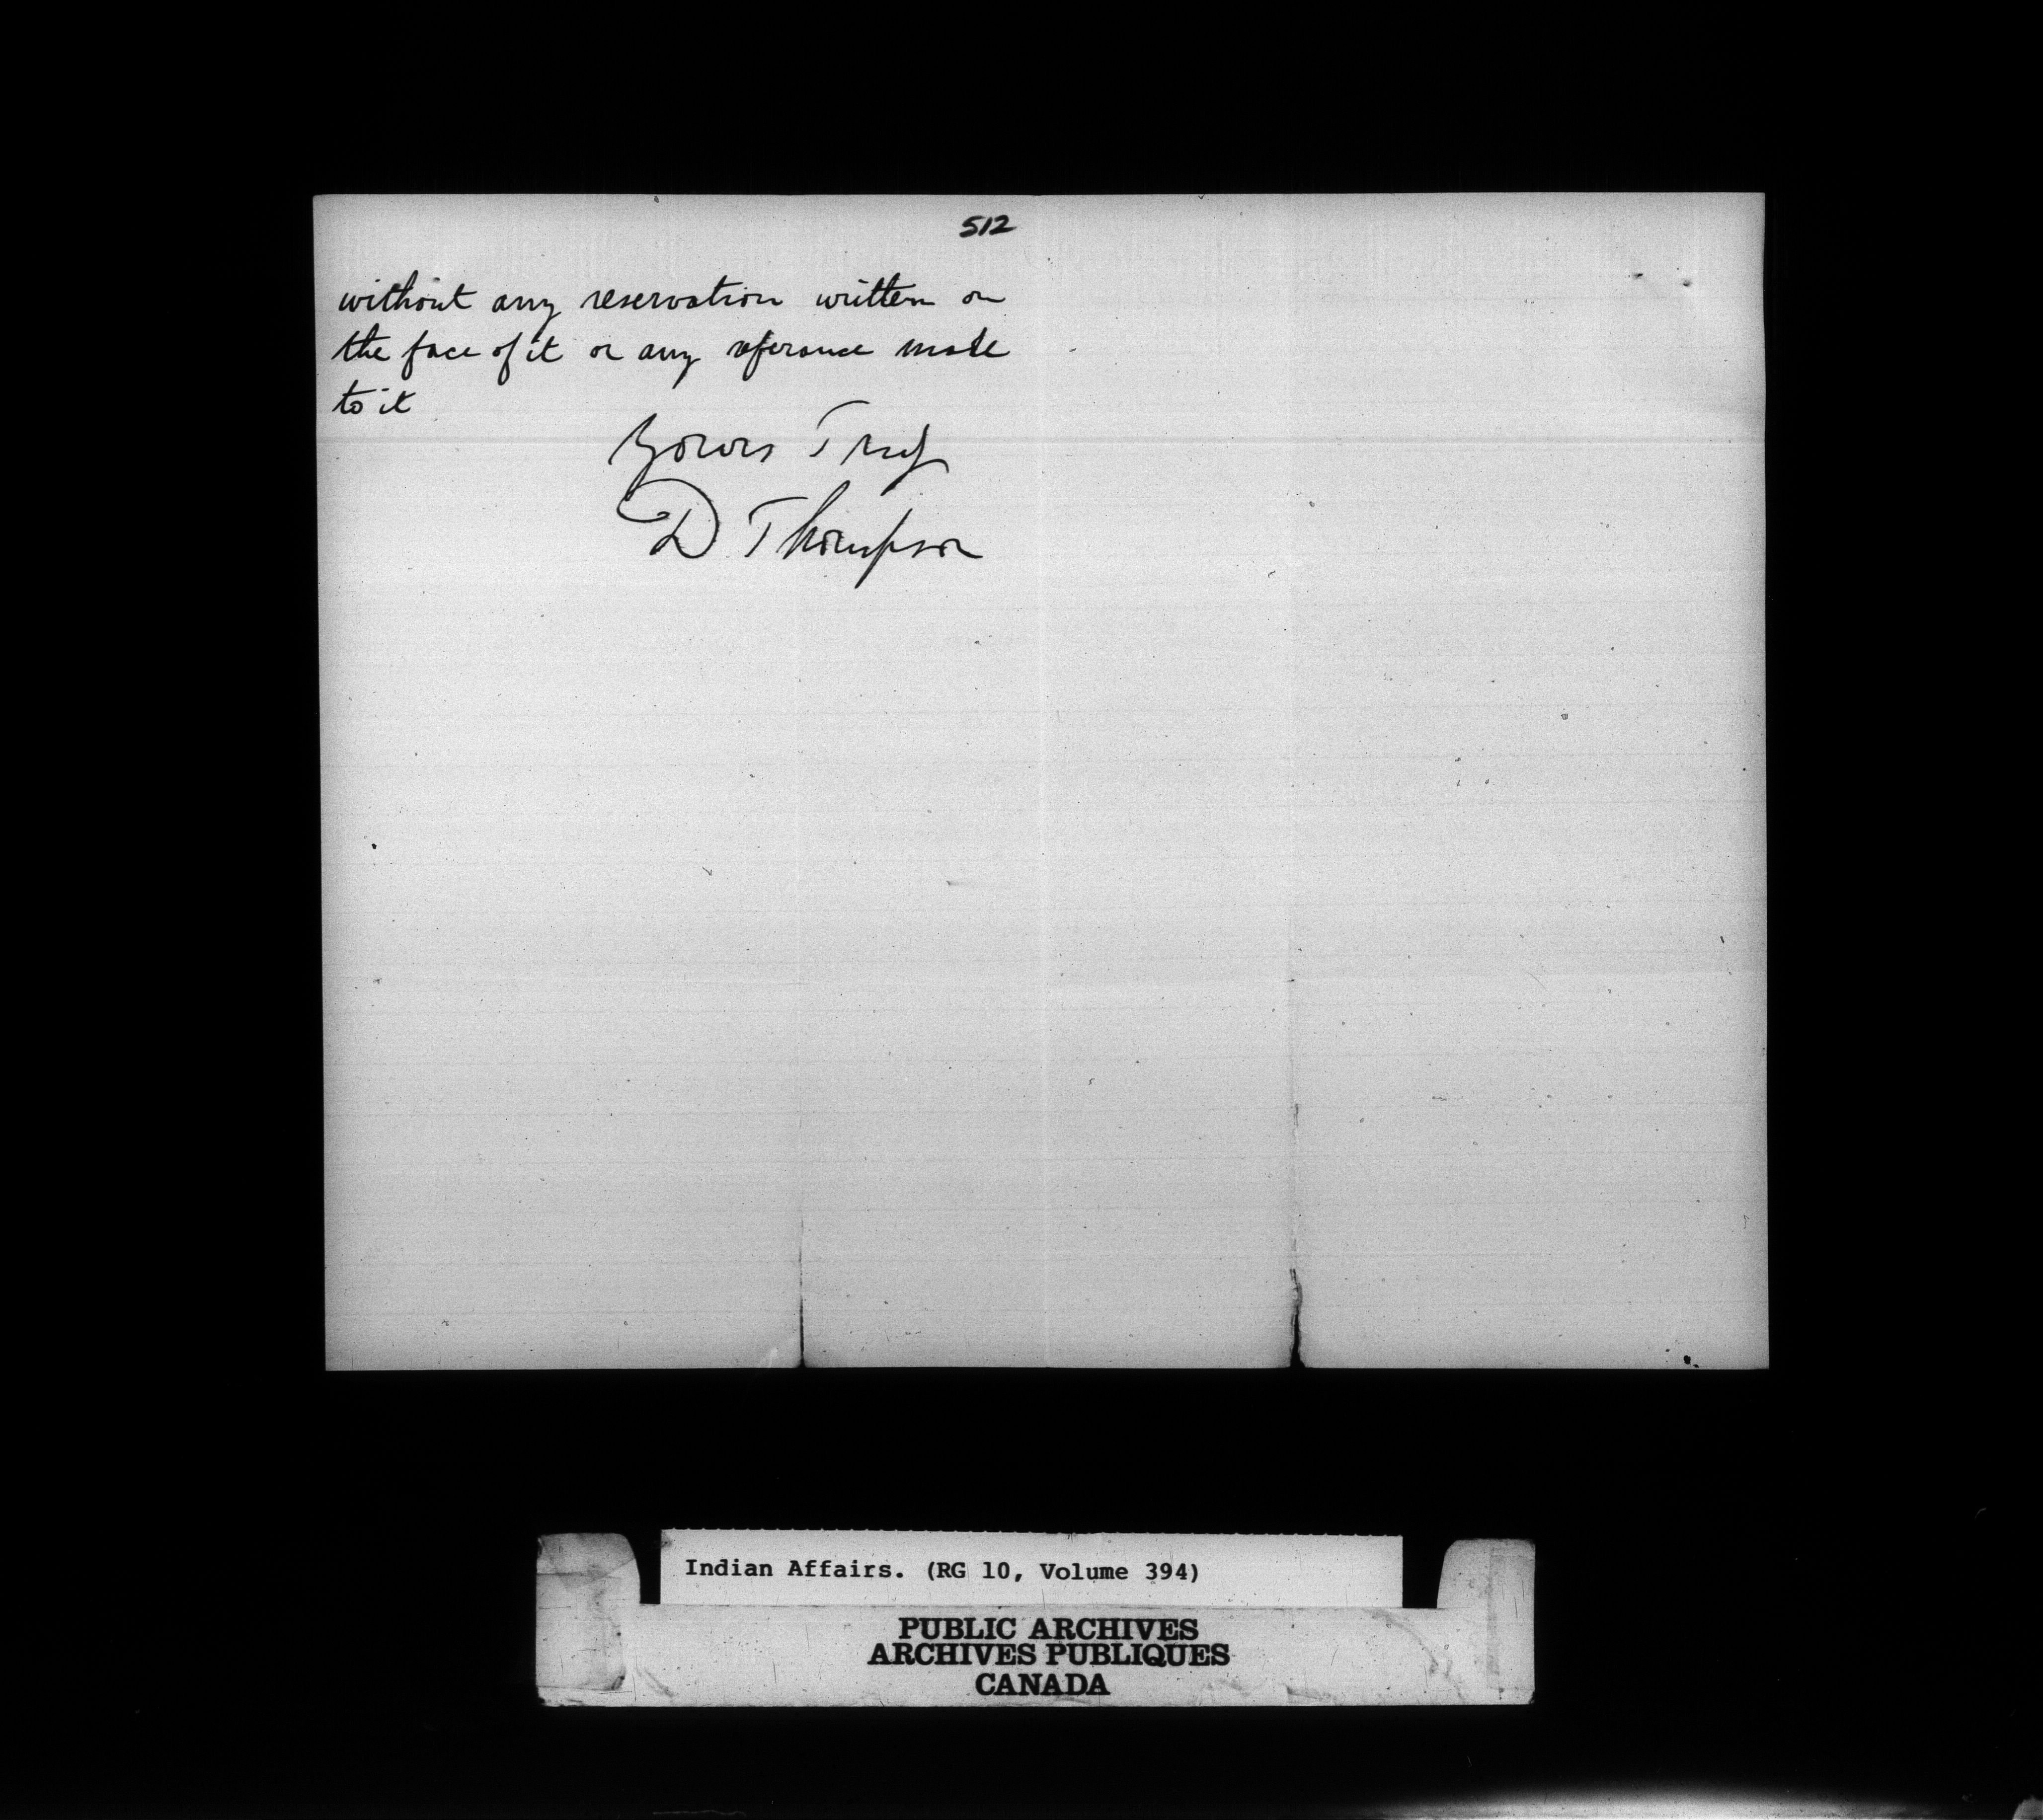 512
without any reservation written on
the face of it or any referance made
to it
Yours Truly
D Thompson
Indian Affairs. (RG 10, Volume 394)
PUBLIC ARCHIVES
ARCHIVES PUBLIQUES
CANADA